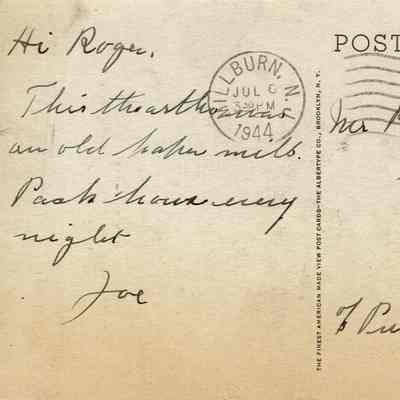 Hi Roger,
This theartho was
an old paper mill.
Pack house every
night
Joe
MILLBURN, N.J.
JUL 6
3 30 PM
1944
POST
THE FINEST AMERICAN MADE VIEW POST CARDS—THE ALBERTYPE CO., BROOKLYN, N. Y.
Mr